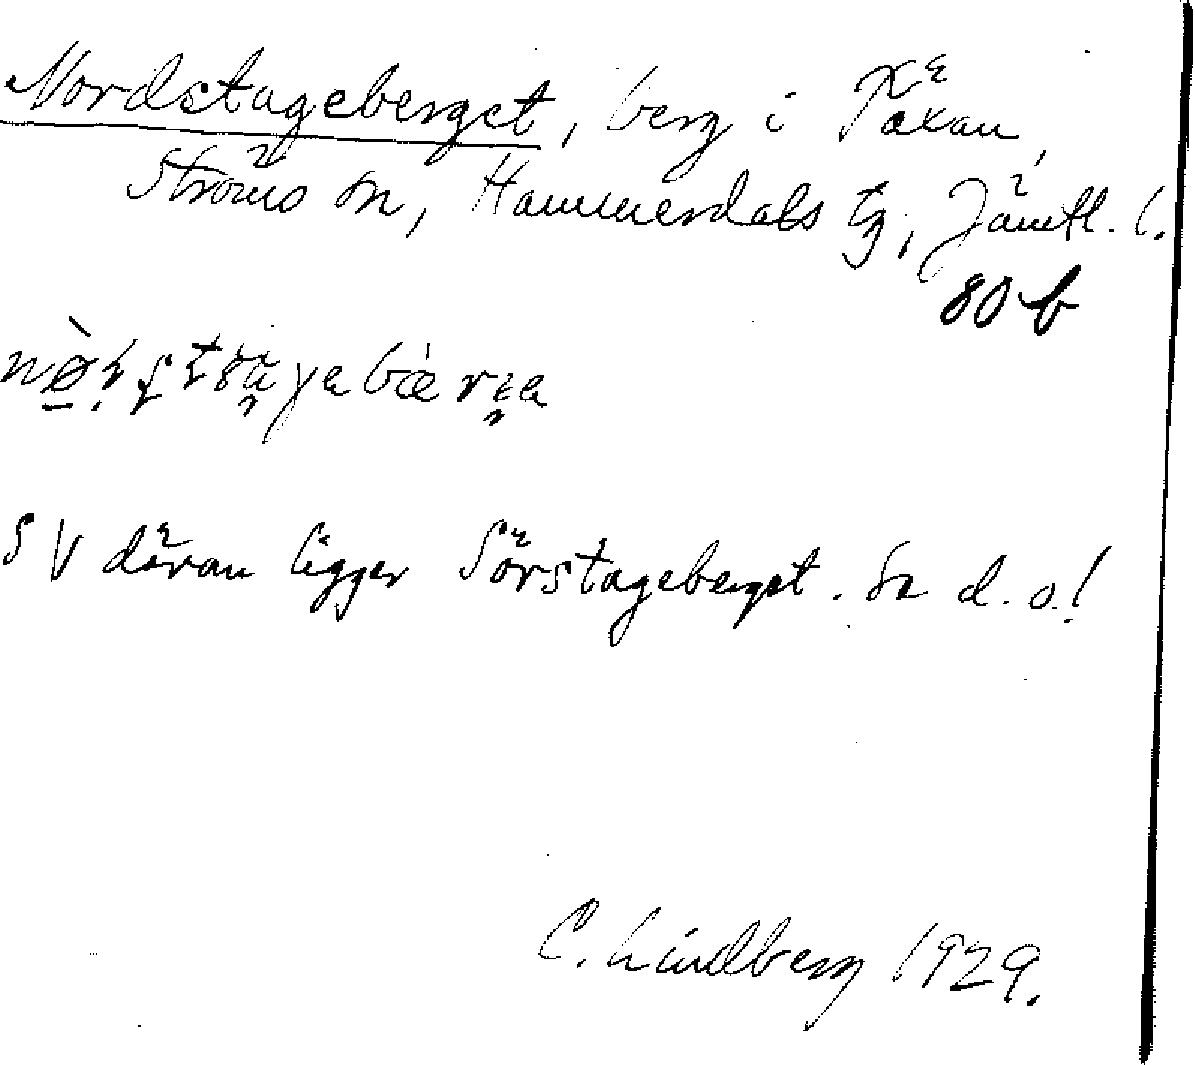 Nordstageberget, berg i Täxan,
Ströms sn, Hammerdals tg, Jämtl. l.
80 b
SV däran ligger Sörstageberget. Se d. o.!
C. Lindberg 1929.